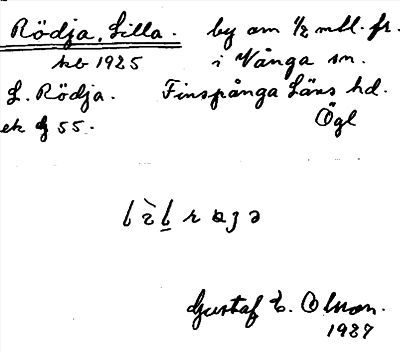 Rödja, Lilla. by om 1/2 mtl. fr.
kb 1925 i Vånga sn.
L. Rödja. Finspånga Läns hd.
ek 55. Ögl
Gustaf E. Olsson.
1927